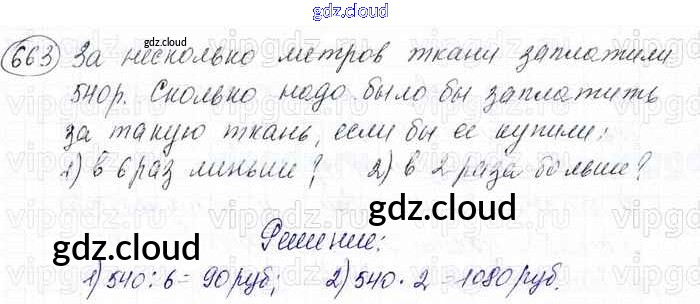 gdz.cloud
gdz.cloud
663 За несколько метров ткани заплатили
540р. Сколько надо было бы заплатить
за такую ткань, если бы ее купили:
1) в 6 раз меньше; 2) в 2 раза больше?
gdz.cloud
gdz.cloud
Решение:
1) 540 : 6 = 90 руб; 2) 540 · 2 = 1080 руб.
gdz.cloud